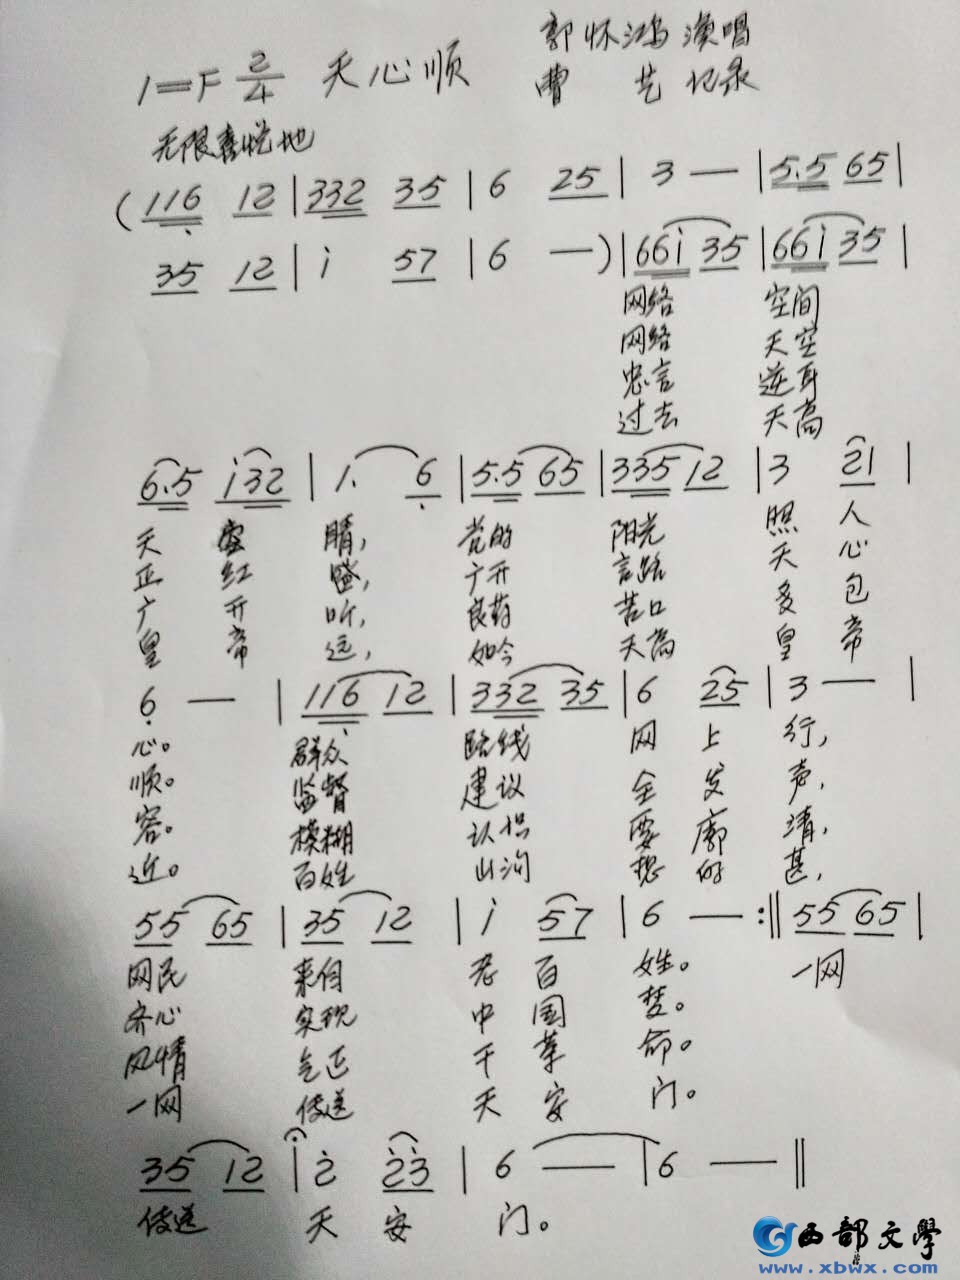 1=F 2/4 天心顺 郭怀鸿 演唱
曹 艺 记录
无限喜悦地
(116 12 | 332 35 | 6 25 | 3 — | 5.5 65 |
35 12 | i 57 | 6 — ) | 66i 35 | 66i 35 |
网络 空间
网络 天空
忠言 逆耳
过去 天高
6.5 i32 | 1. 6 | 5.5 65 | 335 12 | 3 21 |
天 空 晴, 党的 阳光 照 人
正 红 盛, 广开 言路 天 心
广 开 听, 良药 苦口 多 包
皇 帝 远, 如今 天高 皇 帝
6 — | 116 12 | 332 35 | 6 25 | 3 — |
心。 群众 路线 网 上 行,
顺。 监督 建议 全 发 声,
容。 模糊 认识 要 廓 清,
近。 百姓 山沟 想 的 甚,
55 65 | 35 12 | i 57 | 6 — :‖ 55 65 |
网民 来自 老 百 姓。 一网
齐心 实现 中 国 梦。
风情 气正 干 革 命。
一网 传送 天 安 门。
35 12 | 2 23 | 6 — | 6 — ‖
传送 天 安 门。
西部文學
www.xbwx.com